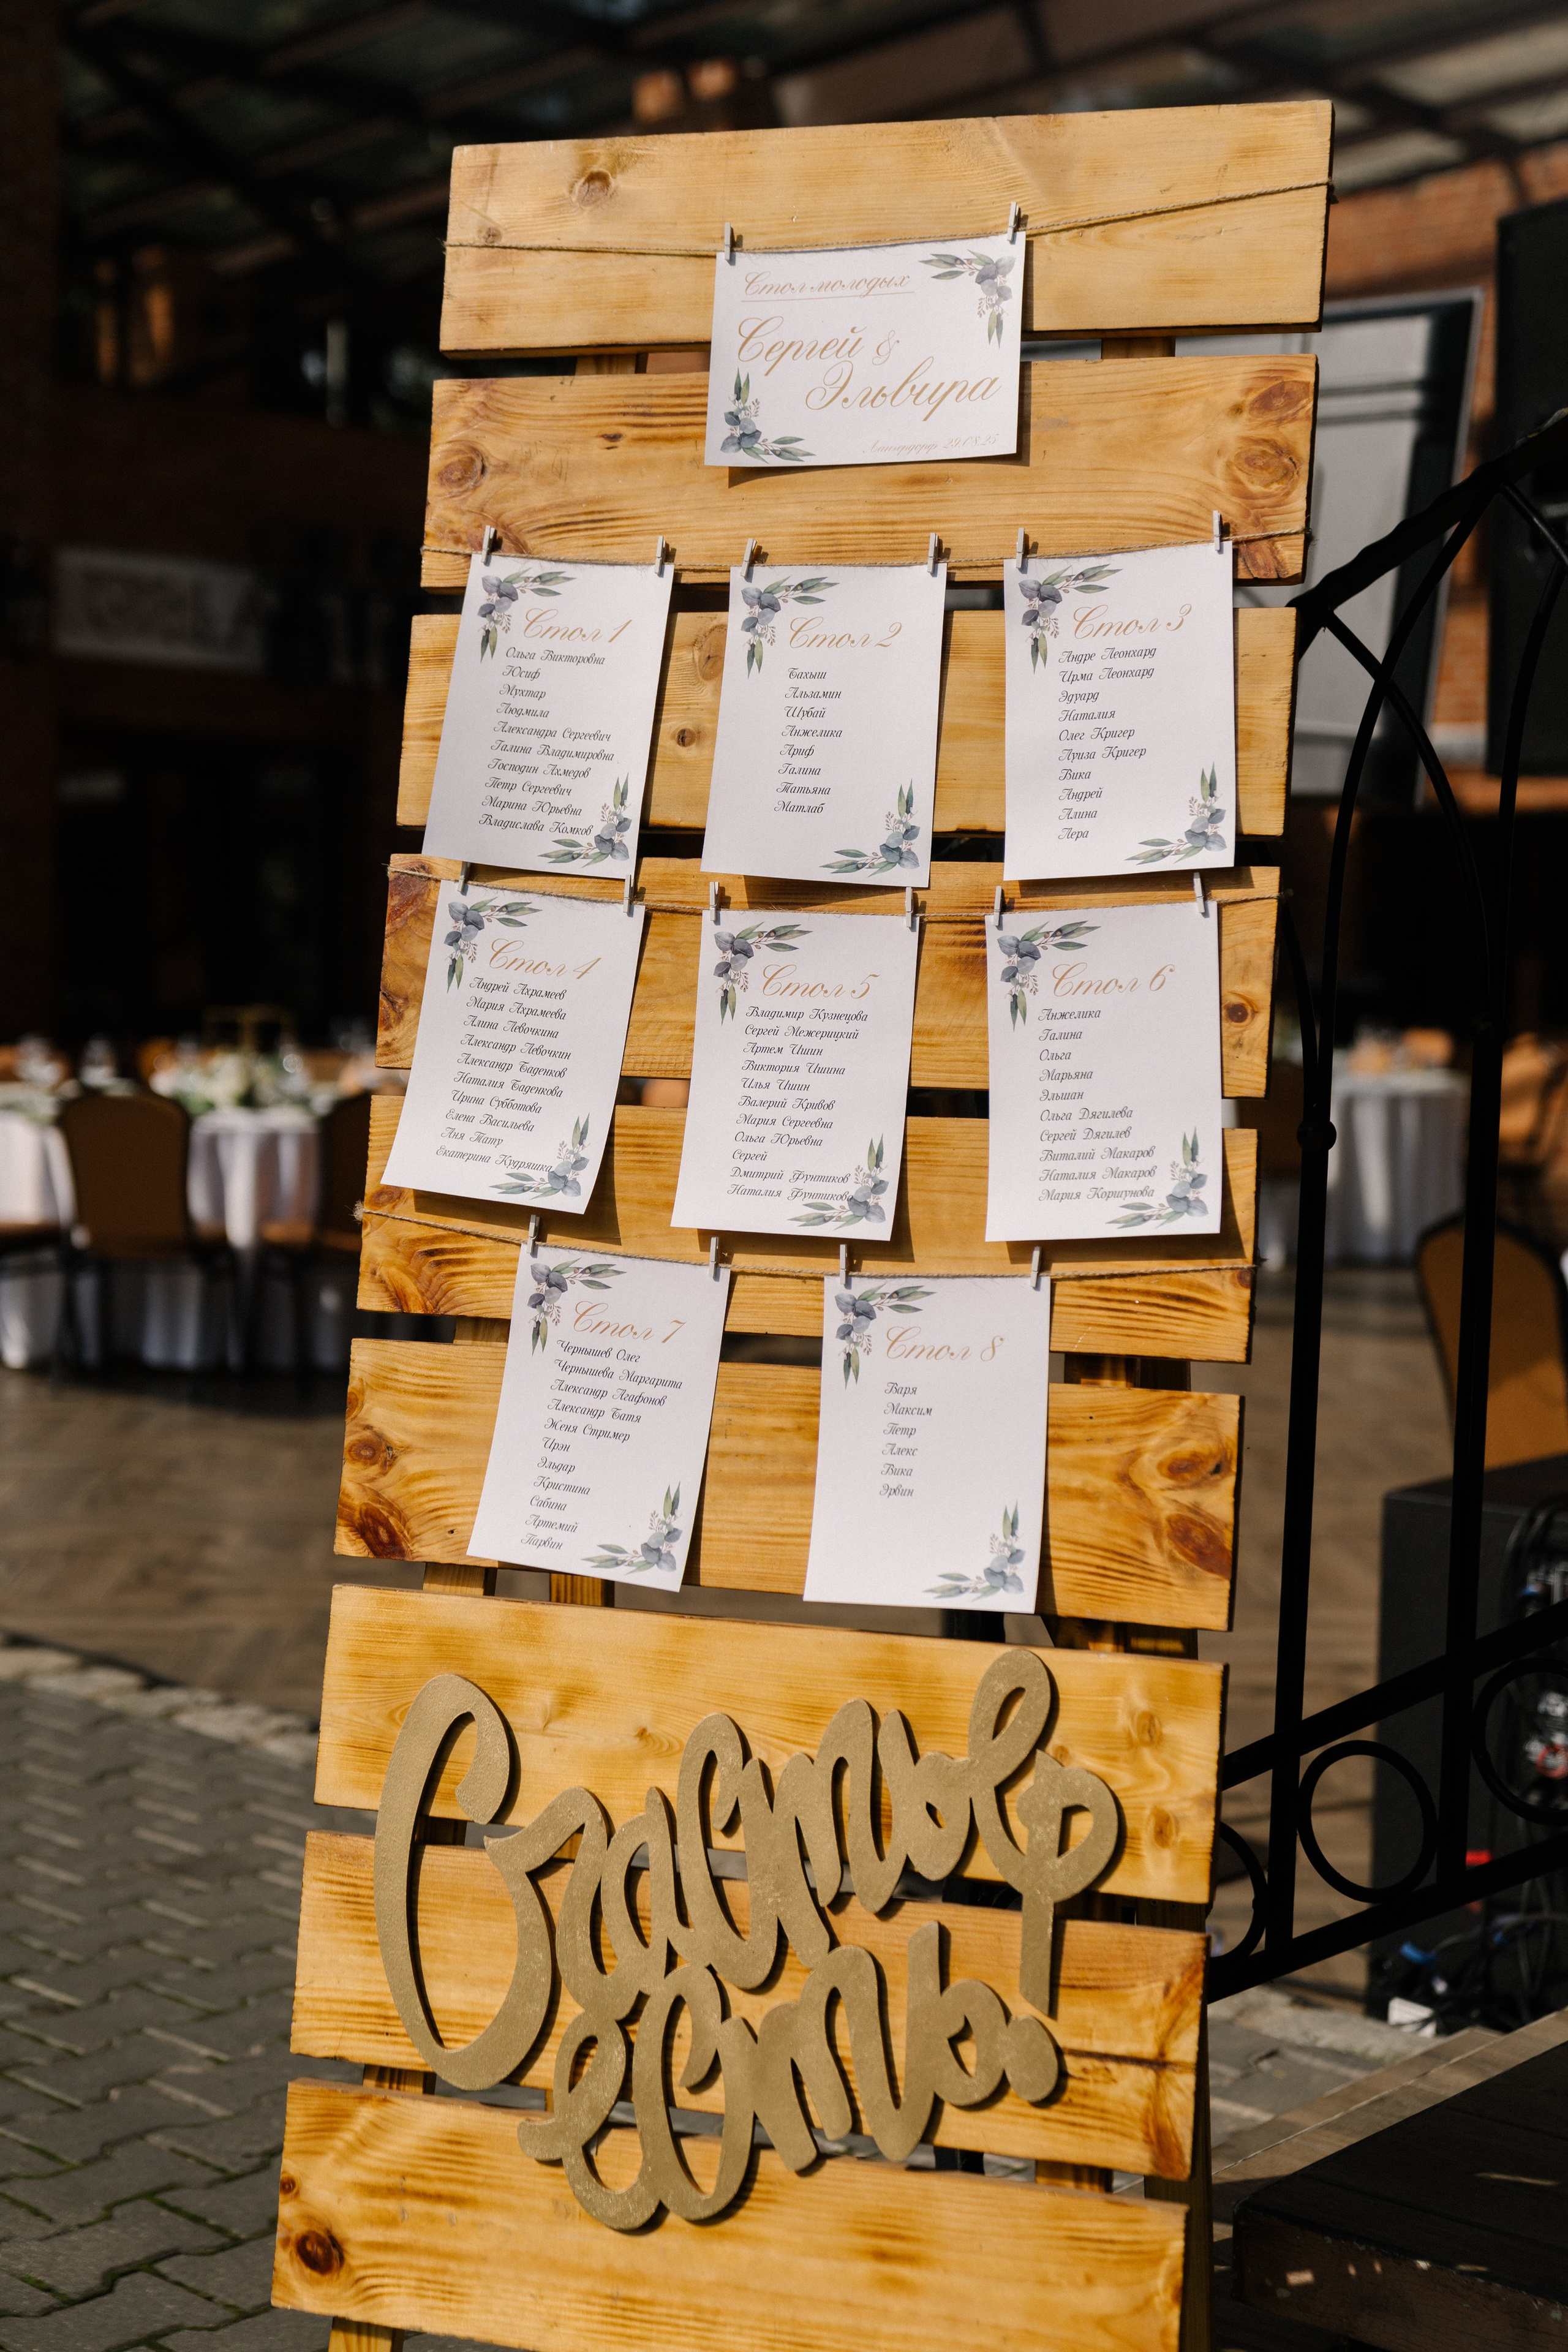 Стол молодых
Сергей &
Эльвира
29.08.25
Стол 1
Ольга Викторовна
Юсиф
Мухтар
Людмила
Александра Сергеевич
Галина Владимировна
Господин Ахмедов
Петр Сергеевич
Марина Юрьевна
Владислава Комков
Стол 2
Бахыш
Альзамин
Шубай
Анжелика
Ариф
Галина
Татьяна
Матлаб
Стол 3
Андре Леонхард
Ирма Леонхард
Эдуард
Наталия
Олег Кригер
Луиза Кригер
Вика
Андрей
Алина
Лера
Стол 4
Андрей Ахрамеев
Мария Ахрамеева
Алина Левочкина
Александр Левочкин
Александр Баденков
Наталия Баденкова
Ирина Субботова
Елена Васильева
Аня Тату
Екатерина Кудряшка
Стол 5
Владимир Кузнецова
Сергей Межерицкий
Артем Ишин
Виктория Ишина
Илья Ишин
Валерий Кривов
Мария Сергеевна
Ольга Юрьевна
Сергей
Дмитрий Фунтиков
Наталия Фунтикова
Стол 6
Анжелика
Галина
Ольга
Марьяна
Эльшан
Ольга Дягилева
Сергей Дягилев
Виталий Макаров
Наталия Макаров
Мария Коршунова
Стол 7
Чернышев Олег
Чернышева Маргарита
Александр Агафонов
Александр Батя
Женя Стример
Ирэн
Эльдар
Кристина
Сабина
Артемий
Парвин
Стол 8
Варя
Максим
Петр
Алекс
Вика
Эрвин
Счастье
есть.